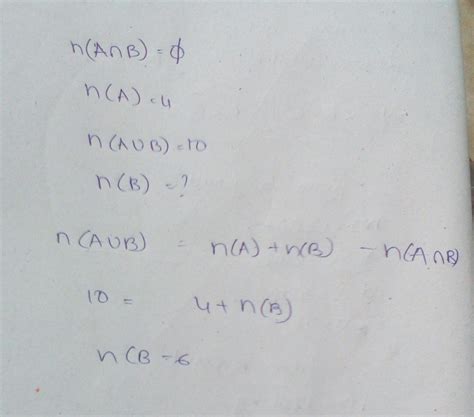 n(A∩B) = ϕ
n(A) = 4
n(A∪B) = 10
n(B) = ?
n(A∪B) = n(A) + n(B) - n(A∩B)
10 = 4 + n(B)
n(B = 6